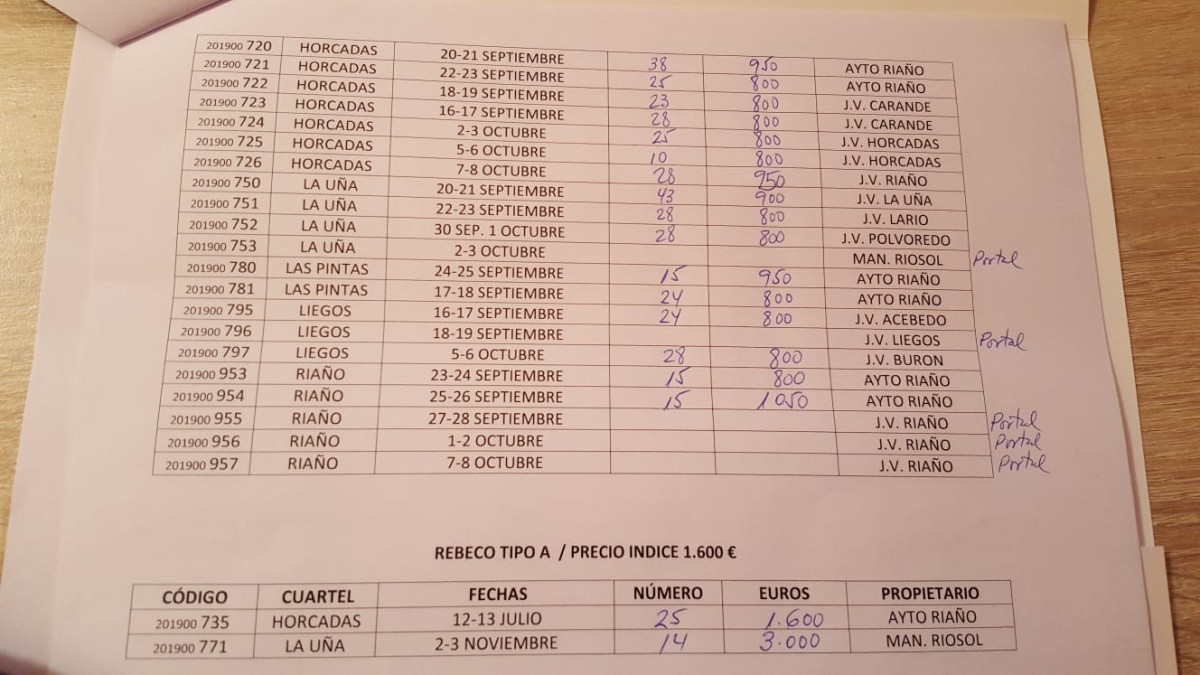 201900 720 HORCADAS 20-21 SEPTIEMBRE 38 950 AYTO RIAÑO
201900 721 HORCADAS 22-23 SEPTIEMBRE 25 800 AYTO RIAÑO
201900 722 HORCADAS 18-19 SEPTIEMBRE 23 800 J.V. CARANDE
201900 723 HORCADAS 16-17 SEPTIEMBRE 28 800 J.V. CARANDE
201900 724 HORCADAS 2-3 OCTUBRE 25 800 J.V. HORCADAS
201900 725 HORCADAS 5-6 OCTUBRE 10 800 J.V. HORCADAS
201900 726 HORCADAS 7-8 OCTUBRE 28 950 J.V. RIAÑO
201900 750 LA UÑA 20-21 SEPTIEMBRE 43 900 J.V. LA UÑA
201900 751 LA UÑA 22-23 SEPTIEMBRE 28 800 J.V. LARIO
201900 752 LA UÑA 30 SEP. 1 OCTUBRE 28 800 J.V. POLVOREDO
201900 753 LA UÑA 2-3 OCTUBRE MAN. RIOSOL Portal
201900 780 LAS PINTAS 24-25 SEPTIEMBRE 15 950 AYTO RIAÑO
201900 781 LAS PINTAS 17-18 SEPTIEMBRE 24 800 AYTO RIAÑO
201900 795 LIEGOS 16-17 SEPTIEMBRE 24 800 J.V. ACEBEDO
201900 796 LIEGOS 18-19 SEPTIEMBRE J.V. LIEGOS Portal
201900 797 LIEGOS 5-6 OCTUBRE 28 800 J.V. BURON
201900 953 RIAÑO 23-24 SEPTIEMBRE 15 800 AYTO RIAÑO
201900 954 RIAÑO 25-26 SEPTIEMBRE 15 1050 AYTO RIAÑO
201900 955 RIAÑO 27-28 SEPTIEMBRE J.V. RIAÑO Portal
201900 956 RIAÑO 1-2 OCTUBRE J.V. RIAÑO Portal
201900 957 RIAÑO 7-8 OCTUBRE J.V. RIAÑO Portal
REBECO TIPO A / PRECIO INDICE 1.600 €
CÓDIGO CUARTEL FECHAS NÚMERO EUROS PROPIETARIO
201900 735 HORCADAS 12-13 JULIO 25 1.600 AYTO RIAÑO
201900 771 LA UÑA 2-3 NOVIEMBRE 14 3.000 MAN. RIOSOL